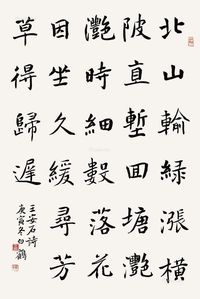 北山輸綠漲橫
陂直塹回塘灩
灩時細數落花
因坐久緩尋芳
草得歸遲
王安石詩
庚寅冬白鶴